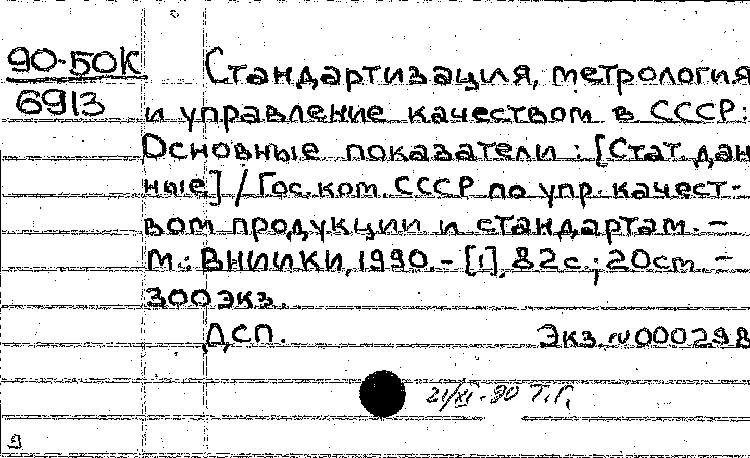 90-50К
6913
Стандартизация, метрология
и управление качеством в СССР:
Основные показатели : [Стат. дан
ные] / Гос. ком. СССР по упр. качест-
вом продукции и стандартам. –
М.: ВНИИКИ, 1990. – [1], 82 с.; 20 см –
300 экз.
ДСП. Экз. N 000298
21/XI-90 Т.Г.
9